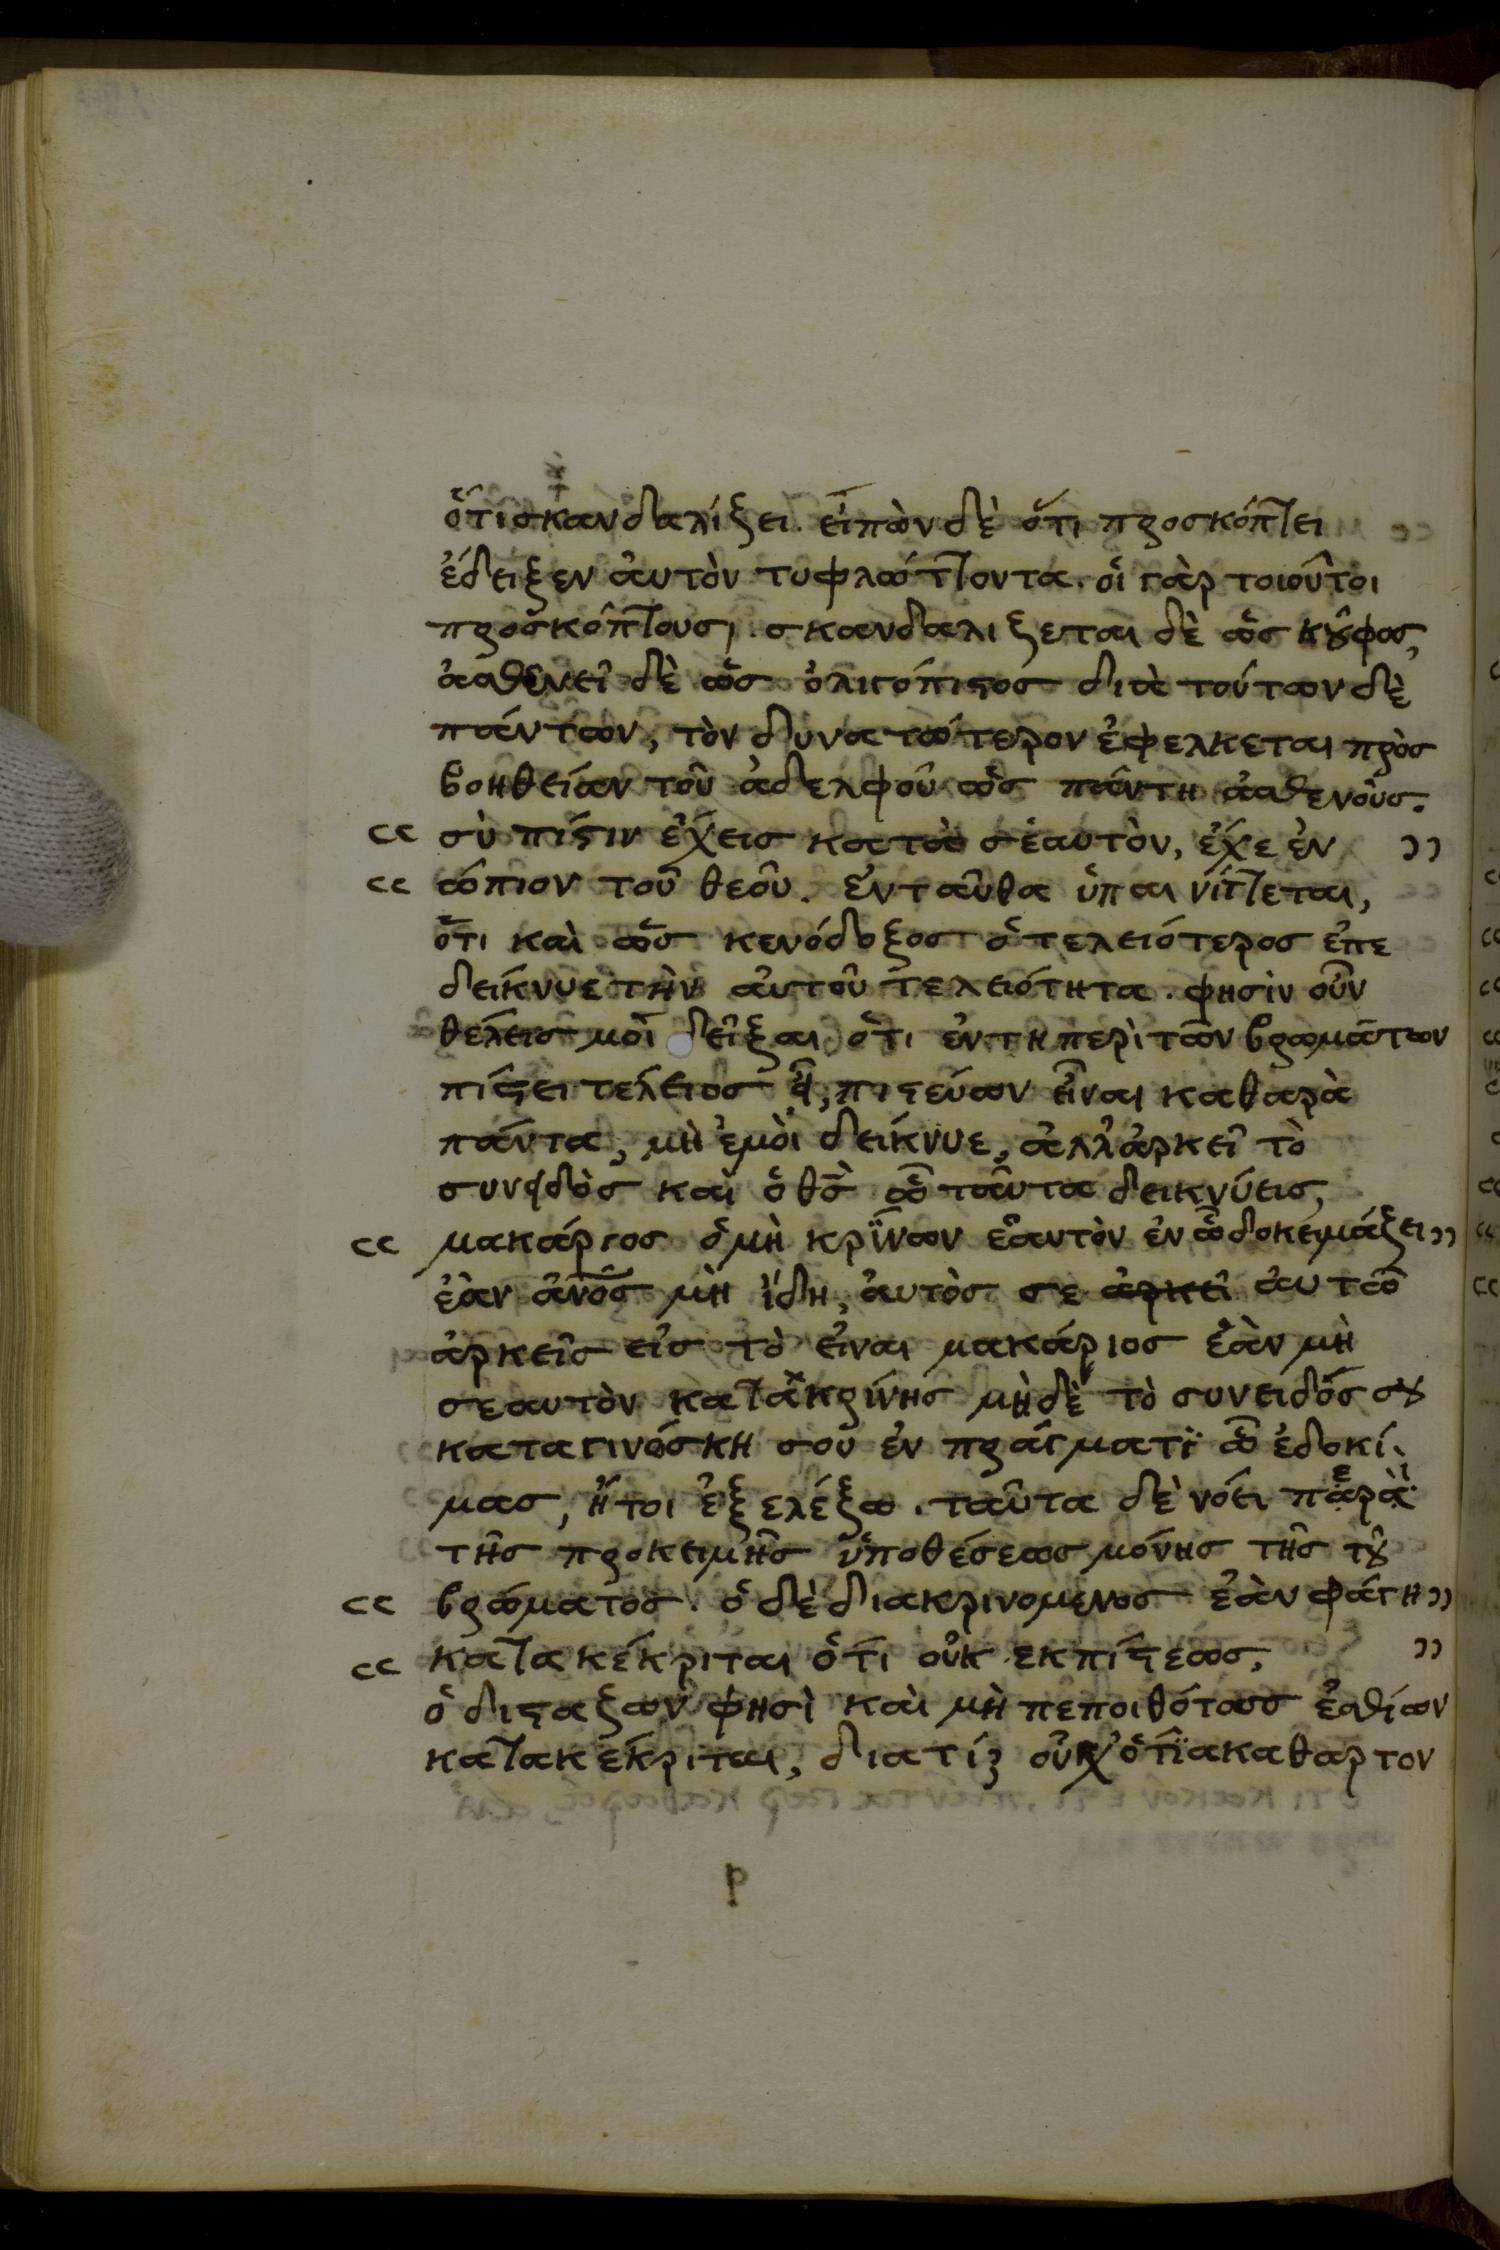 ὅτι σκανδαλίζει. εἰπὼν δὲ ὅτι προσκόπτει
ἔδειξεν ἀυτὸν τυφλώττοντα. οἱ γὰρ τοιοῦτοι
προσκόπτουσι. σκανδαλίζεται δὲ ὡς κοῦφος,
ἀσθενεῖ δὲ ὡς ὀλιγόπιστος διὰ τούτων δὲ
πάντων, τὸν δυνατώτερον ἐφελκεται πρὸς
βοηθείαν τοῦ ἀδελφοῦ ὡς πάντη ἀσθενοῦς.
σὺ πίστιν ἔχεις κατὰ σἑαυτὸν, ἔχε ἐν
ώπιον τοῦ θεοῦ. ἐνταῦθα ὑπαινίττεται,
ὅτι καὶ ὡς κενόδοξος ὁ τελειότερος ἐπε
δείκνυε τὴν αὐτοῦ τελειότητα. φησὶν οὖν
θέλεις μοῖ δεῖξαι ὅτι ἐν τη περὶ τῶν βρωμάτων
πίστει τέλειος εἶ, πιστεύων εἶναι καθαρὰ
πάντα, μὴ ἐμοὶ δείκνυε, ἀλλ' ἀρκεῖ τὸ
συνειδὸς καὶ ὁ θς ὧ ταῦτα δεικνύεις,
μακάριος ὁ μὴ κρίνων ἑαυτὸν ἐν ὧ δοκεμάζει
ἐὰν ἀνος μὴ ἴδη, ἀυτὸς σε ἀρκεῖ ἀυτῶ
ἀρκεῖς εἰς τὸ εἶναι μακάριος ἐὰν μὴ
σεαυτὸν κατακρίνης μὴδὲ τὸ συνειδός σου
καταγινώσκη σου ἐν πράγματι ὧ ἐδοκί
μας, ἤτοι ἐξελέξω. ταῦτα δὲ νόει περὶ
τῆς προκειμένης ὑποθέσεως μόνης τῆς τοῦ
βρώματος. ὁ δὲ διακρινομενος ἐὰν φάγη
κατακέκριται ὅτι οὐκ εκ πίστεως,
ὁ διστάζων φησὶ καὶ μὴ πεποιθότως ἐσθίων
κατακέκριται, διατί; οὐχ ὅτι ακαθαρτον
ρ